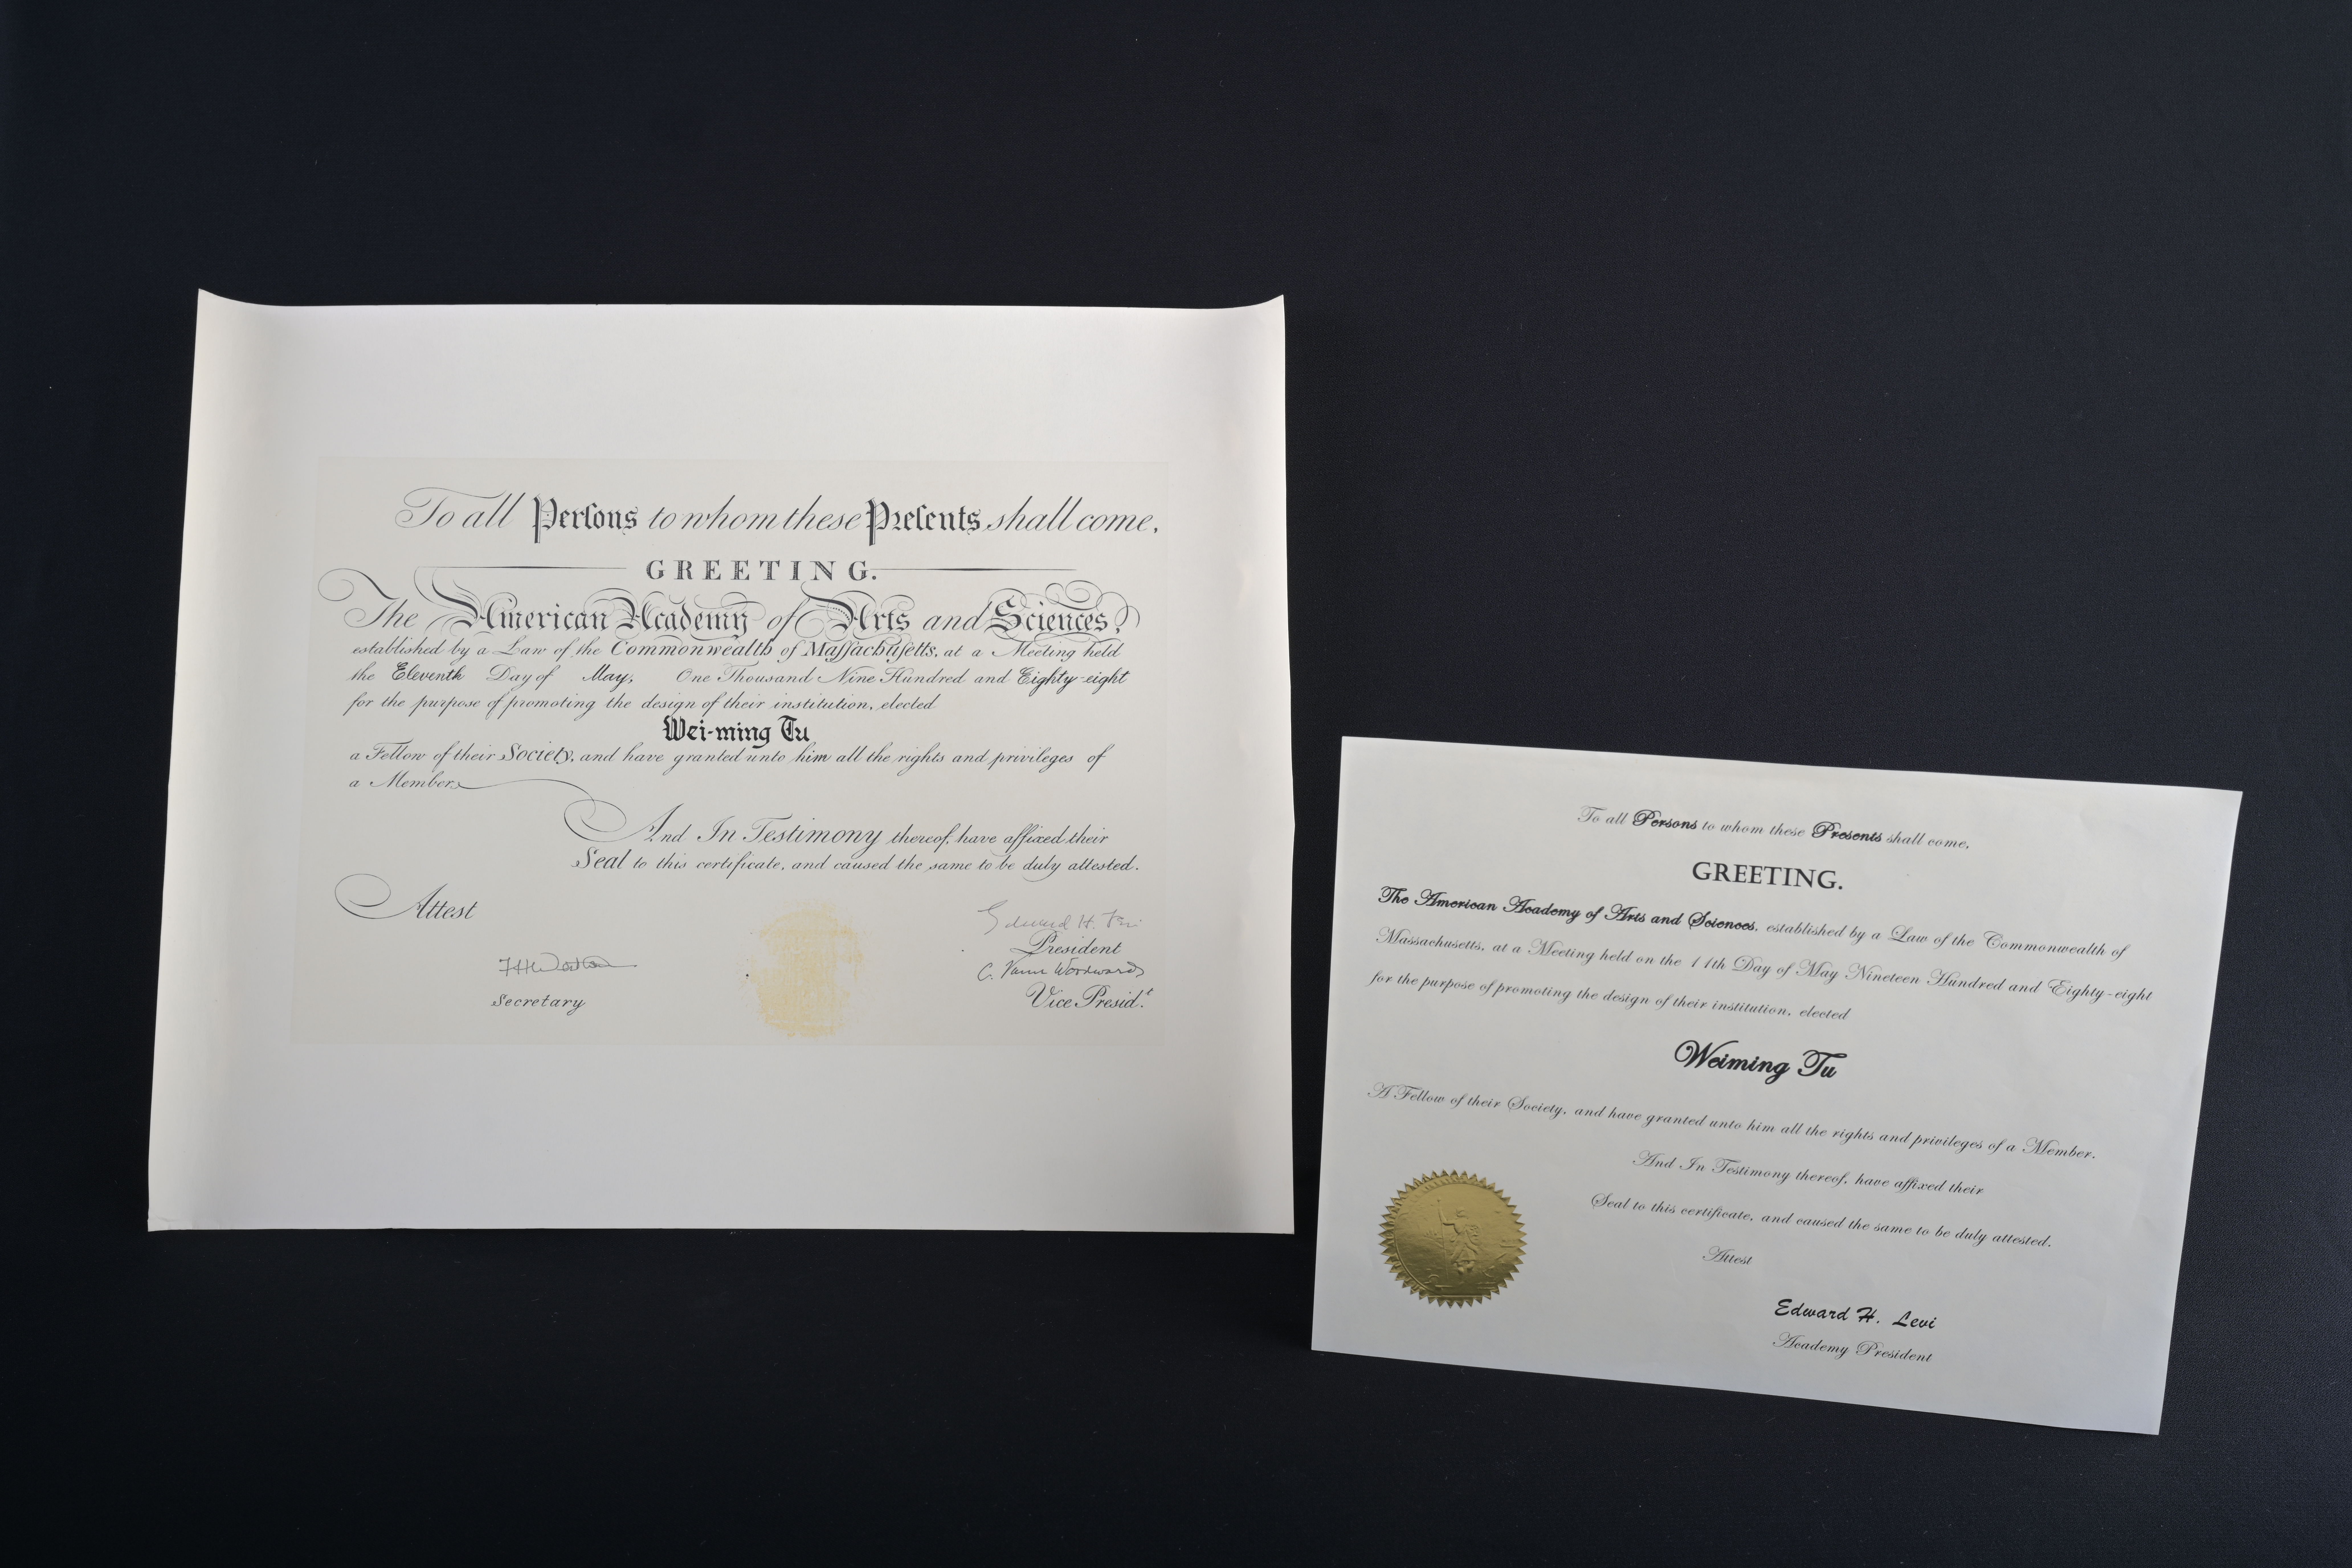 To all Persons to whom these Presents shall come,
GREETING.
The American Academy of Arts and Sciences,
established by a Law of the Commonwealth of Massachusetts, at a Meeting held
the Eleventh Day of May, One Thousand Nine Hundred and Eighty-eight
for the purpose of promoting the design of their institution, elected
Wei-ming Tu
a Fellow of their Society, and have granted unto him all the rights and privileges of
a Member.
And In Testimony thereof, have affixed their
Seal to this certificate, and caused the same to be duly attested.
Attest
Edward H. Levi
President
C. Vann Woodward
Vice Presid.t
Secretary
To all Persons to whom these Presents shall come,
GREETING.
The American Academy of Arts and Sciences, established by a Law of the Commonwealth of
Massachusetts, at a Meeting held on the 11th Day of May Nineteen Hundred and Eighty-eight
for the purpose of promoting the design of their institution, elected
Weiming Tu
A Fellow of their Society, and have granted unto him all the rights and privileges of a Member.
And In Testimony thereof, have affixed their
Seal to this certificate, and caused the same to be duly attested.
Attest
Edward H. Levi
Academy President